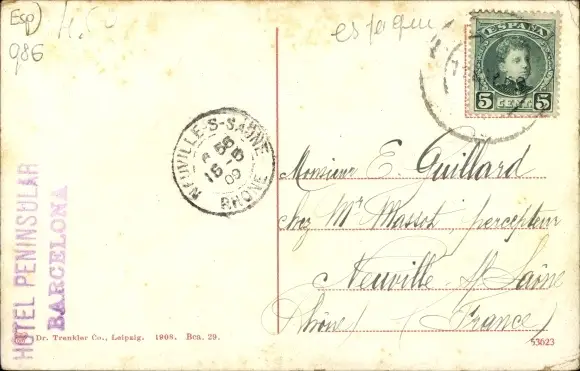 Esp)
986
espagne
ESPAÑA
5 CENT. 5
NEUVILLE-S-SAÔNE
15
09
RHONE
Monsieur E. Guillard
chez Mr Massot, percepteur
Neuville s/ Saône
Rhône (France)
HOTEL PENINSULAR
BARCELONA
Dr. Trenkler Co., Leipzig. 1908. Bca. 29.
53523